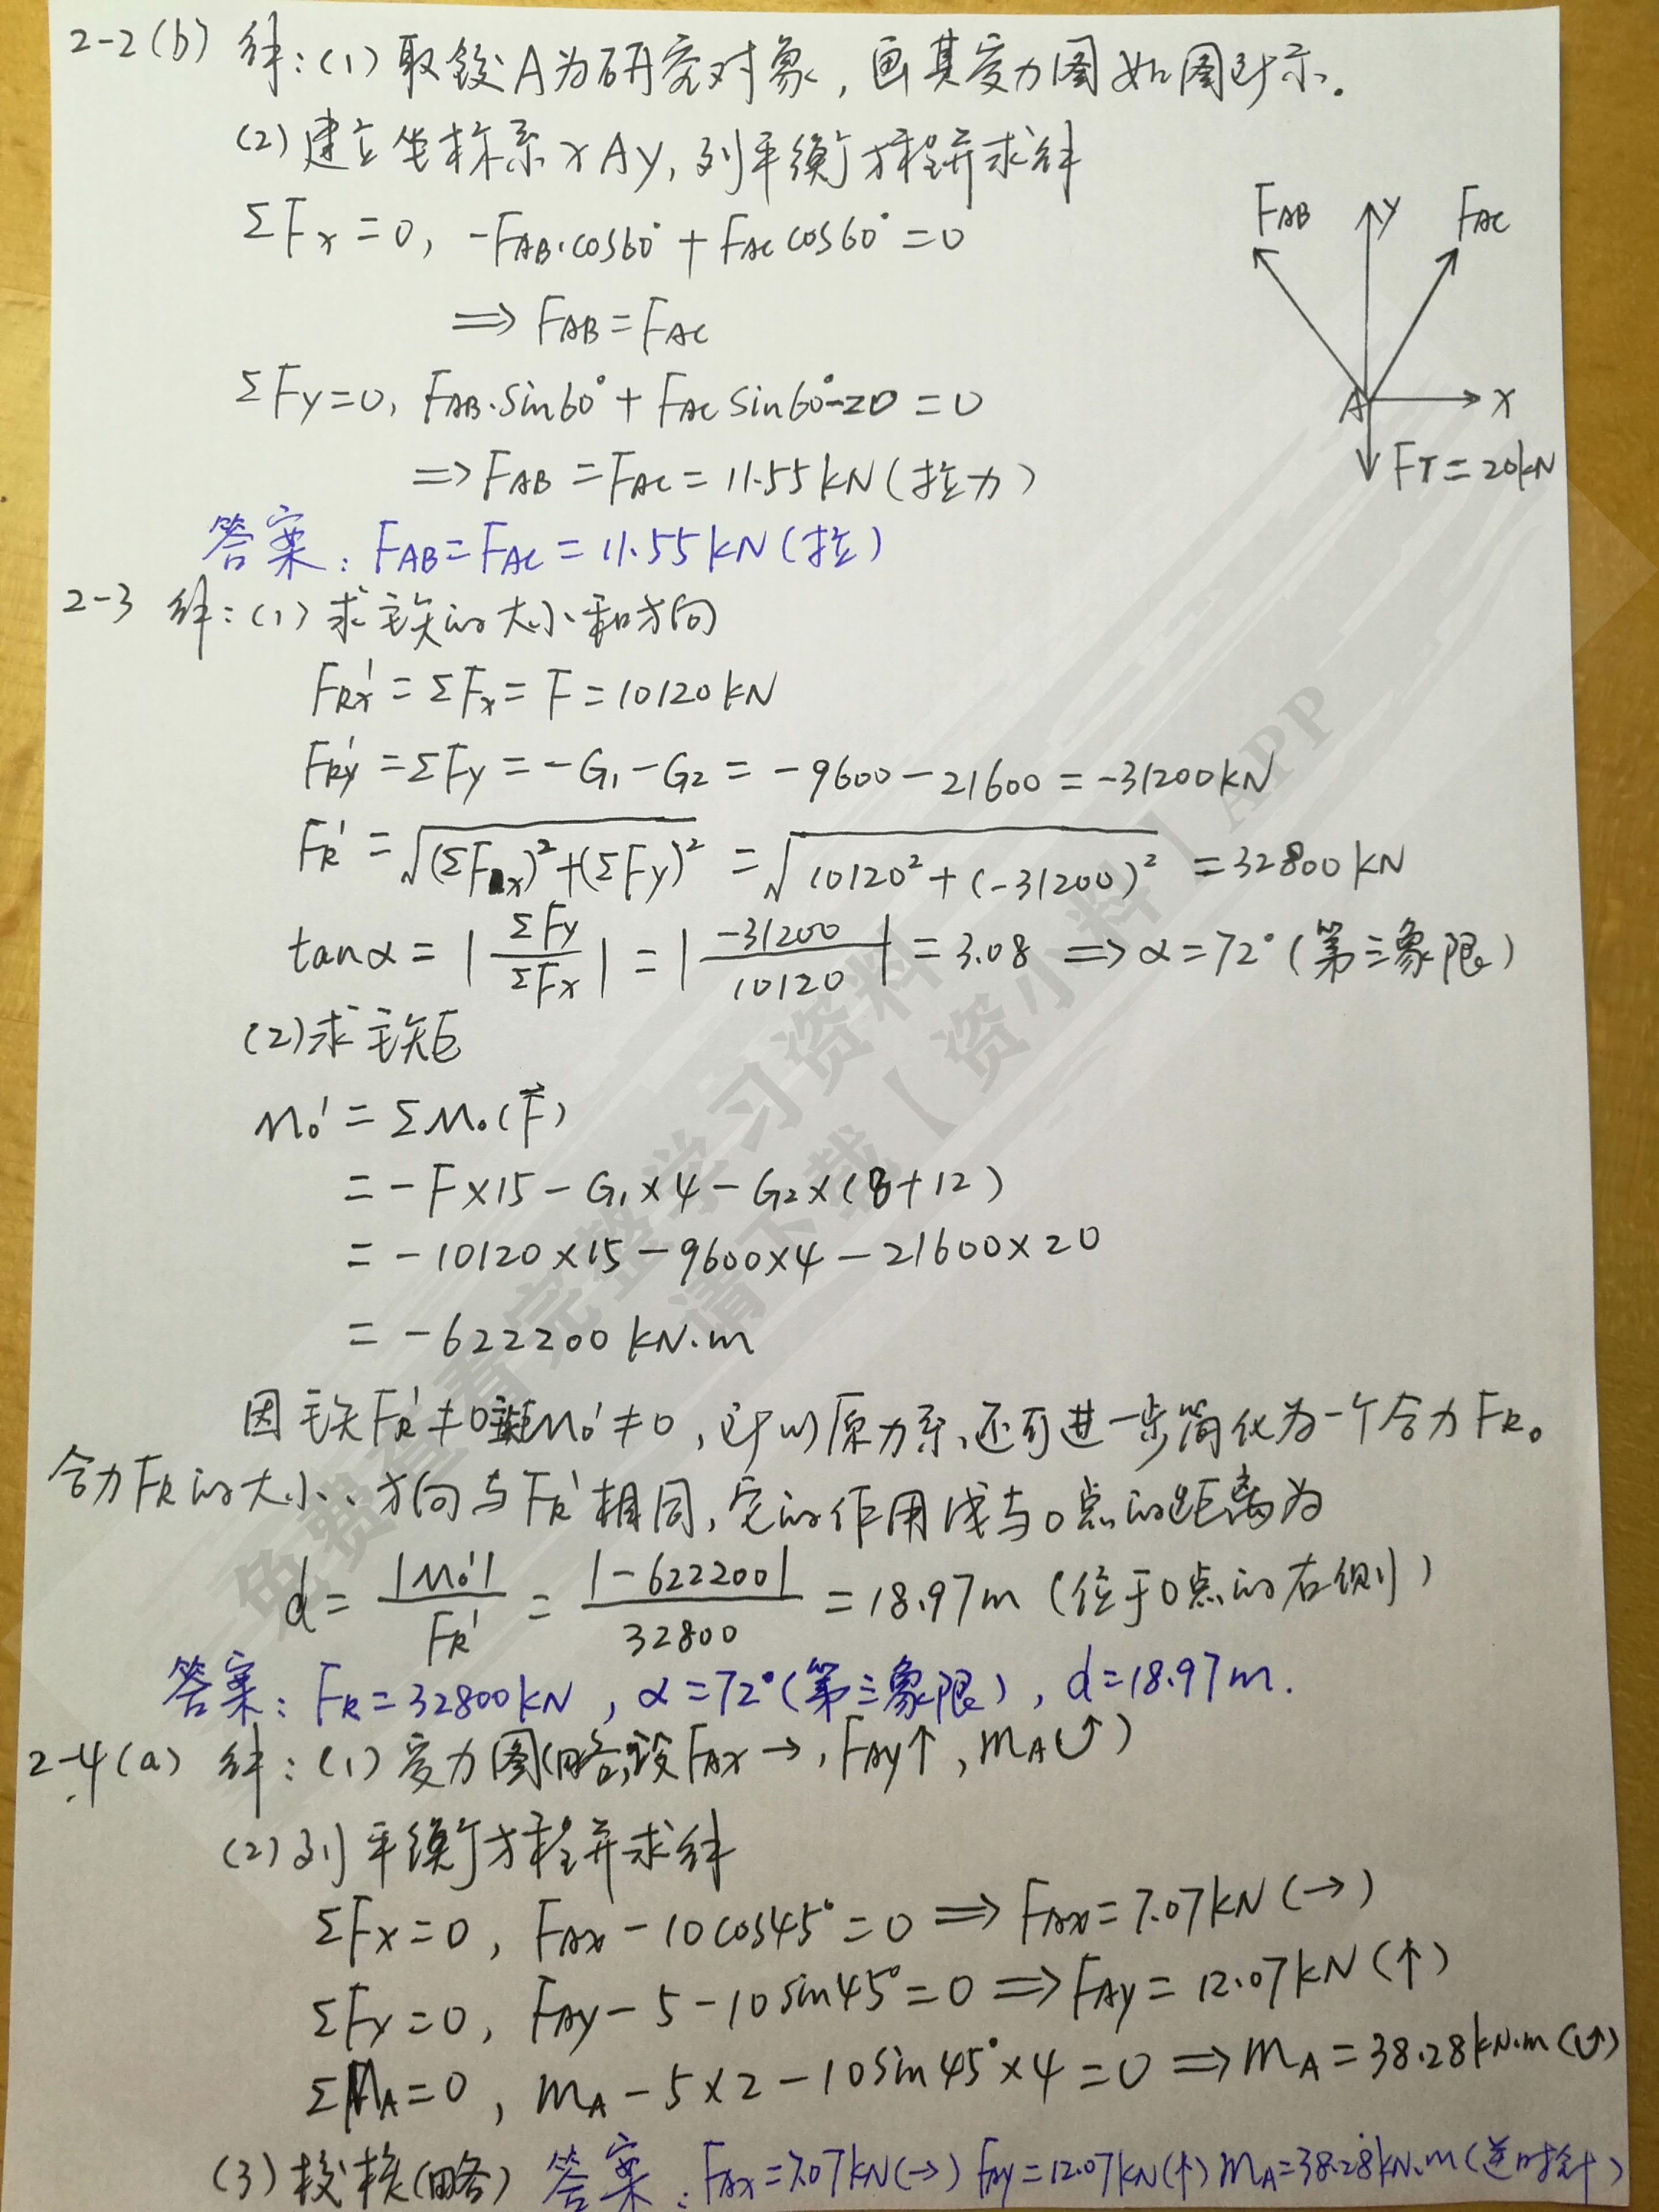 2-2(b) 解:(1)取铰A为研究对象,画其受力图如图所示.
(2)建立坐标系xAy,列平衡方程并求解
ΣFx=0, -FAB·cos60°+FAC cos60°=0
⟹ FAB=FAC
ΣFy=0, FAB·sin60°+FAC sin60°-20=0
⟹FAB=FAC=11.55kN(拉力)
FAB
y
FAC
A
x
FT=20kN
答案:FAB=FAC=11.55kN(拉)
2-3 解:(1)求主矢的大小和方向
FRx'=ΣFx=F=10120kN
FRy'=ΣFy=-G1-G2=-9600-21600=-31200kN
FR'=√(ΣFRx)²+(ΣFy)²=√10120²+(-31200)²=32800kN
tanα=|ΣFy/ΣFx|=|-31200/10120|=3.08 ⟹α=72°(第三象限)
(2)求主矩
Mo'=ΣMo(F⃗)
=-F×15-G1×4-G2×(8+12)
=-10120×15-9600×4-21600×20
=-622200kN.m
因主矢FR'≠0主矩Mo'≠0,所以原力系还可进一步简化为一个合力FR。
合力FR的大小、方向与FR'相同,它的作用线与O点的距离为
d=|Mo'|/FR'=|-622200|/32800=18.97m(位于O点的右侧)
答案:FR=32800kN,α=72°(第三象限),d=18.97m.
2-4(a) 解:(1)受力图(略,设FAx→,FAy↑,mA↺)
(2)列平衡方程并求解
ΣFx=0, FAx-10cos45°=0⟹FAx=7.07kN(→)
ΣFy=0, FAy-5-10sin45°=0⟹FAy=12.07kN(↑)
ΣMA=0, mA-5×2-10sin45°×4=0⟹mA=38.28kN.m(↺)
(3)校核(略) 答案:FAx=7.07kN(→) FAy=12.07kN(↑) mA=38.28kN.m(逆时针)
免费查看完整学习资料
请下载【资小料】APP